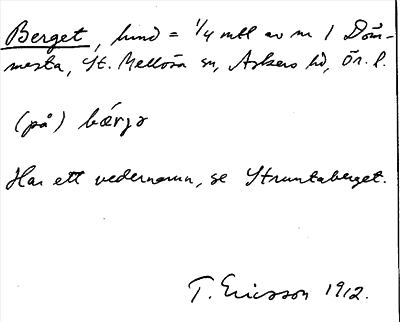 Berget, lund = 1/4 mtl av nr 1 Döm-
mesta, St. Mellösa sn, Askers hd, Ör. l.
(på) bærjə
Har ett vedernamn, se Struntaberget.
T. Ericsson 1912.